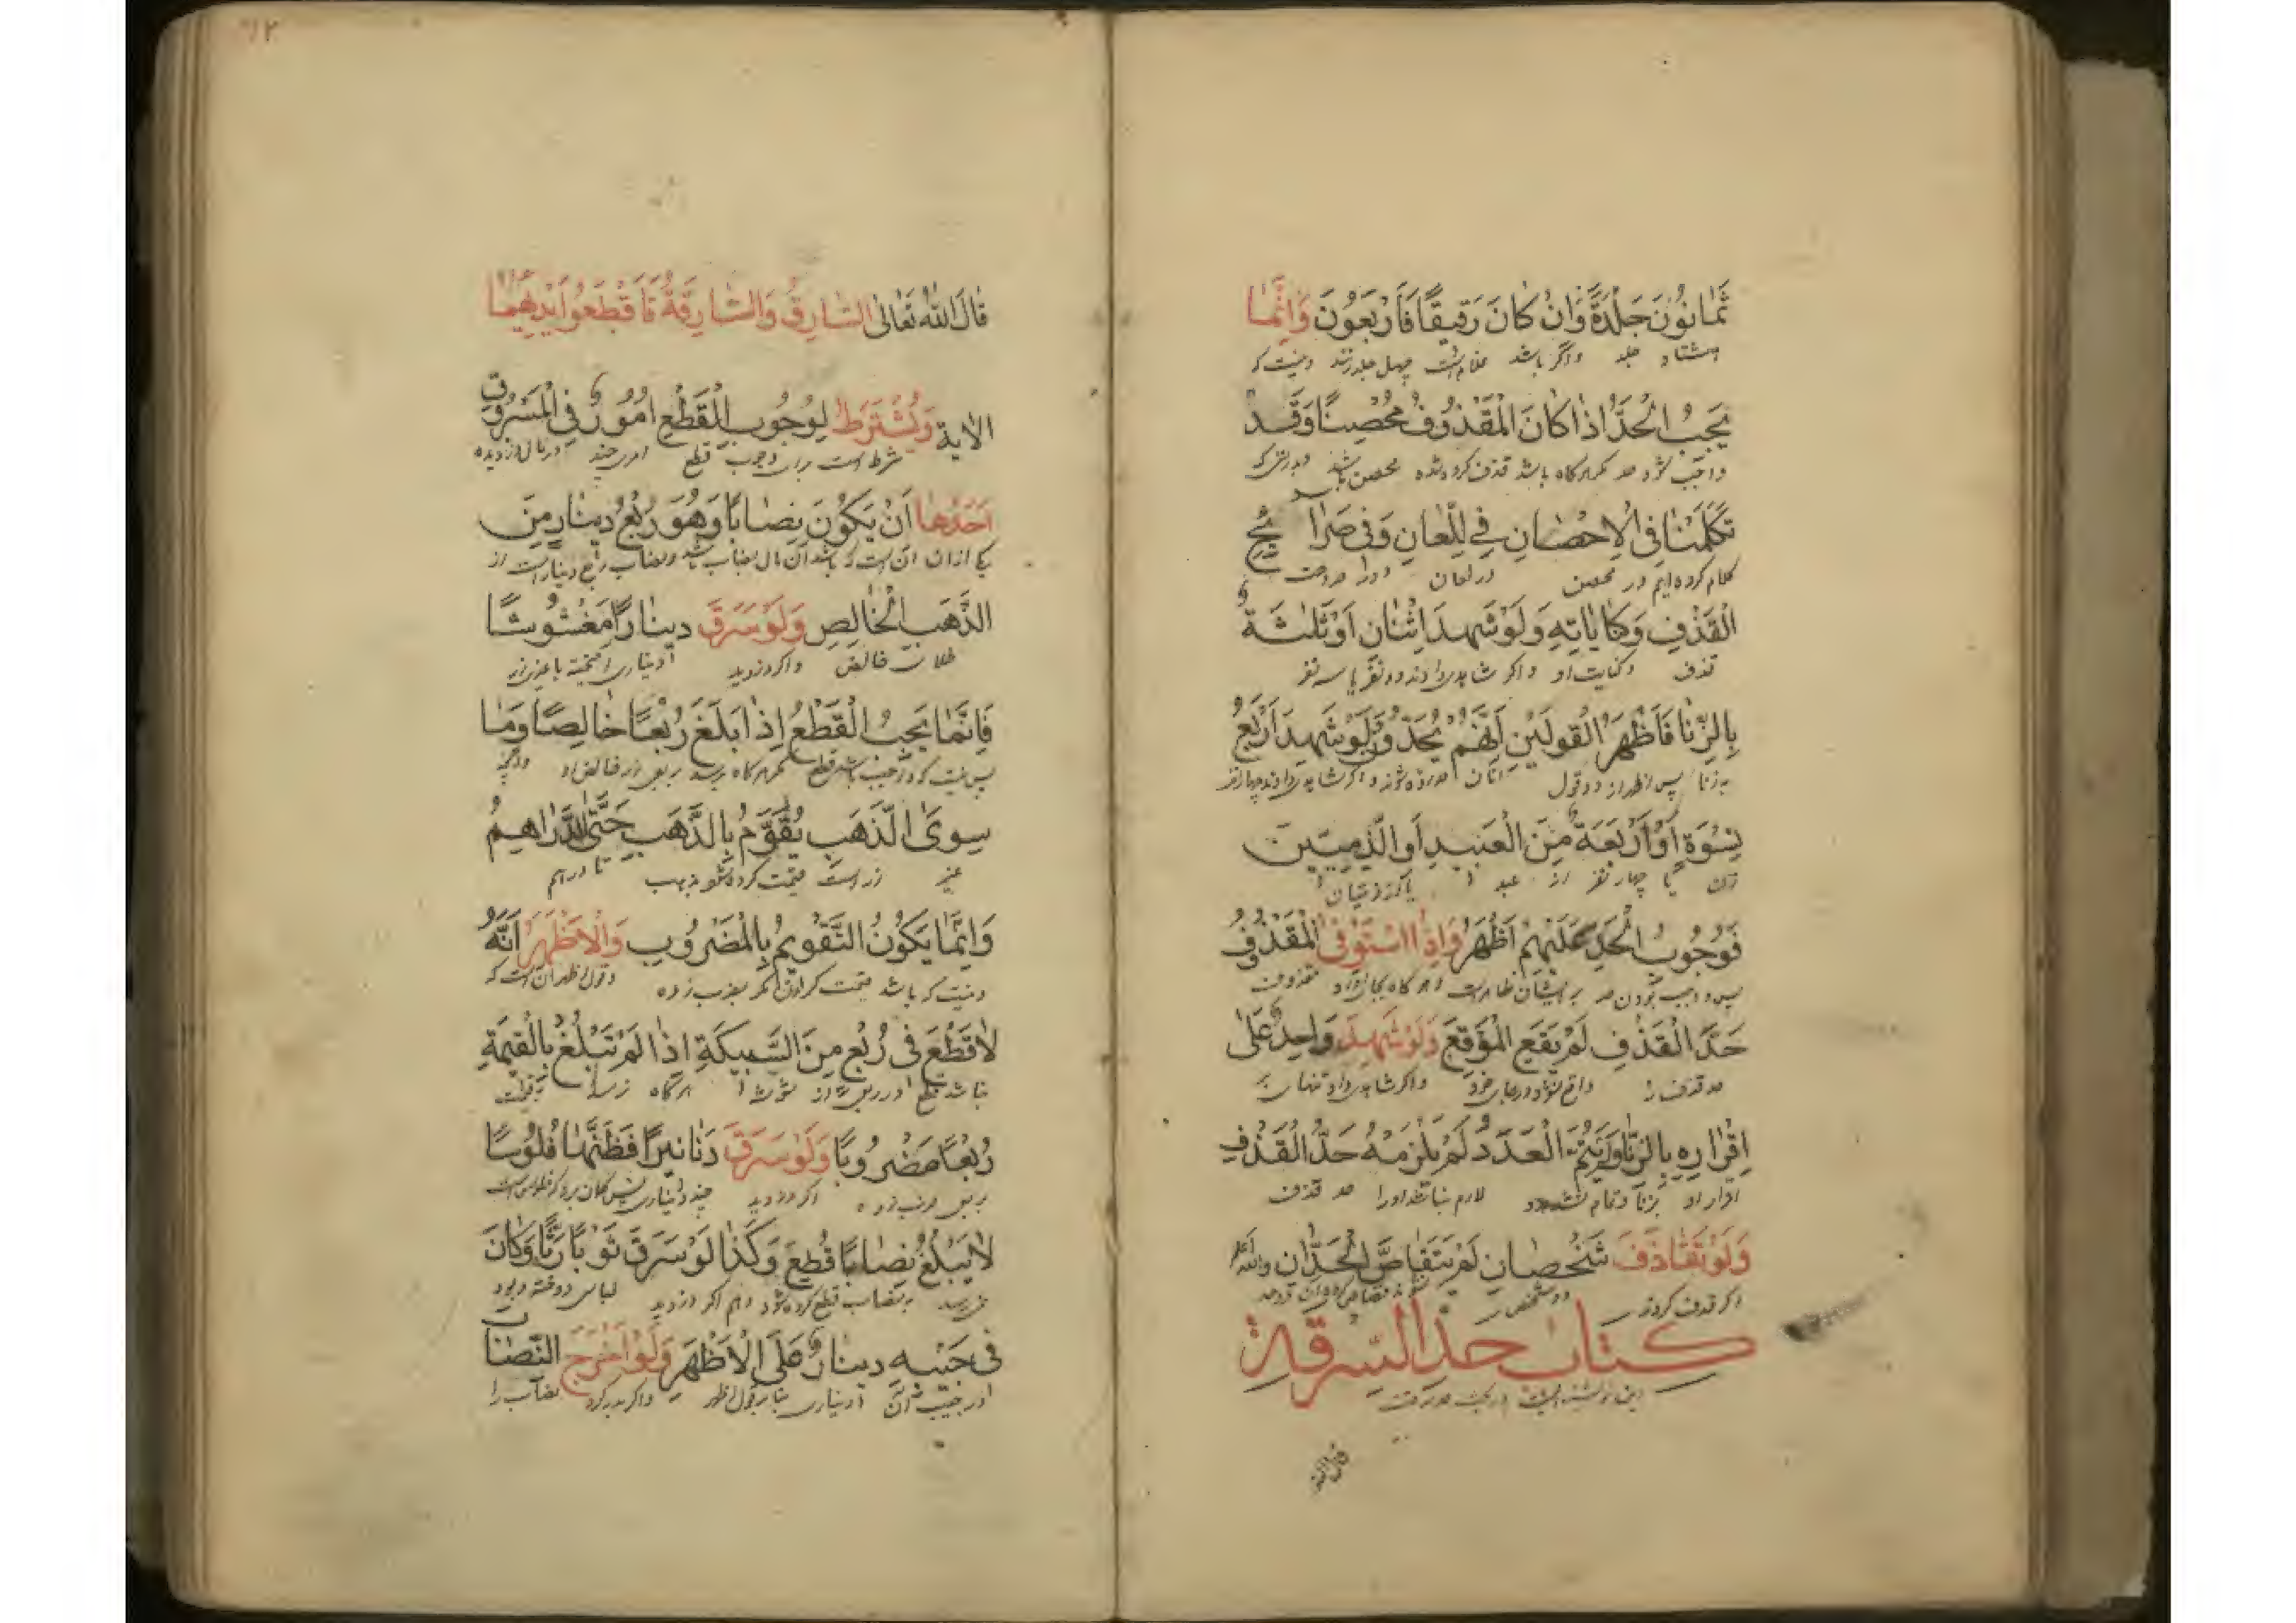 ثَمَانُونَ جَلْدَةً وَاِنْ كَانَ رَقِيقًا فَاَرْبَعُونَ وَاِنَّمَا
هشتاد جلد واگر باشد غلام است چهل جلد زنند و نیست که
يَجِبُ الْحَدُّ اِذَا كَانَ الْمَقْذُوفُ مُحْصِنًا وَقَدْ
واجب شود حد مگر هرکاه باشد قذف کرده شده محصن باشد
تَكَلَّمْنَا فِى الْاِحْصَانِ فِى اللِّعَانِ وَفِى صَرَا يُحِ
کلام کرده ایم در محصن در لعان
الْقَذْفِ وَكَنَايَاتِهِ وَلَوْ شَهِدَ اِثْنَانِ اَوْ ثَلٰثَةٌ
قذف و کنایت او واکر شاهدی دادند دو نفر یا سه نفر
بِالزِّنَا فَاَظْهَرُ الْقَولَيْنِ اَنَّهُمْ يُحَدُّوْنَ وَلَوْ شَهِدَ اَرْبَعُ
به زنا پس اظهر از دو قول آنان حد زده شوند واکر شاهدی دادند چهار نفر
نِسْوَةٍ اَوْ اَرْبَعَةٌ مِنَ الْعَبِيدِ اَوِ الذِّمِيّيِنَ
زن یا چهار نفر از عبد
فَوُجُوبُ الْحَدِّ عَلَيْهِمْ اَظْهَرُ وَاِذَا اسْتَوْفَى الْمَقْذُوفُ
پس واجب بودن حد بر ایشان ظاهر است و هر کاه مقذوف
حَدَّ الْقَذْفِ لَمْ يَقَعِ الْمَوْقِعَ وَلَوْ شَهِدَ وَاحِدٌ عَلٰى
حد قذف را واکر شاهدی داد تنها بر
اِقْرَارِهِ بِالزِّنَا وَلَمْ يَتِمَّ الْعَدَدُ لَمْ يَلْزَمْهُ حَدُّ الْقَذْفِ
اقرار او بزنا و تمام نشد لازم نباشد اورا حد قذف
وَلَوْ تَقَاذَفَ شَخْصَانِ لَمْ يَتَقَاصَّ الْحَدَّانِ والله اعلم
اکر قذف کردند دو شخص
كتاب حد السرقة
قال الله
قَالَ اللهُ تَعَالٰى السَّارِقُ وَالسَّارِقَةُ فَاقْطَعُوا اَيْدِيَهُمَا
الاٰية وَيُشْتَرَطُ لِوُجُوبِ الْقَطْعِ اُمُورٌ فِى الْمَسْرُوقِ
شرط است برای وجوب قطع امری چند در مال دزدیده
اَحَدُهَا اَنْ يَكُوْنَ نِصَابًا وَهُوَ رُبْعُ دِينَارٍ مِنَ
یکی از ان آن است که باشد آن مال نصاب باشد و نصاب ربع دینار است از
الذَّهَبِ الْخَالِصِ وَلَوْ سَرَقَ دِينَارًا مَغْشُوشًا
طلای خالص واکر دزدید دیناری
فَاِنَّمَا يَجِبُ الْقَطْعُ اِذَا بَلَغَ رُبْعًا خَالِصًا وَمَا
پس نیست که واجب باشد قطع مگر هرکاه برسد بربع
سِوَى الذَّهَبِ يُقَوَّمُ بِالذَّهَبِ حَتَّى الدَّرَاهِمُ
غیر زر است قیمت کرده شود بذهب تا دراهم
وَاِنَّمَا يَكُوْنُ التَّقْوِيمُ بِالْمَضْرُوبِ وَالْاَظْهَرُ اَنَّهُ
و نیست که باشد قیمت کردن مگر بضرب زده وقول اظهر آن است که
لَا قَطْعَ فِى رُبْعٍ مِنَ السَّبِيكَةِ اِذَا لَمْ تَبْلُغْ بِالْقِيمَةِ
نباشد قطع در ربعی از هر کاه نرسد بقیمت
رُبْعًا مَضْرُوبًا وَلَوْ سَرَقَ دَنَانِيرَ فَظَنَّهَا فُلُوسًا
بربعی ضرب زده اکر دزدید چند دیناری پس کمان برد که فلوس است
لَا يَبْلُغُ نِصَابًا قُطِعَ وَكَذَا لَوْ سَرَقَ ثَوْبًا رَثًّا وَكَانَ
نمیرسد بنصاب قطع کرده شود و هم اکر دزدید لباس
فِى جَنْبِهِ دِينَارٌ عَلَى الْاَظْهَرِ وَلَوْ اَخْرَجَ النِّصَابَ
در جیب آن دیناری بنابر قول اظهر واکر بدر کرد نصاب را